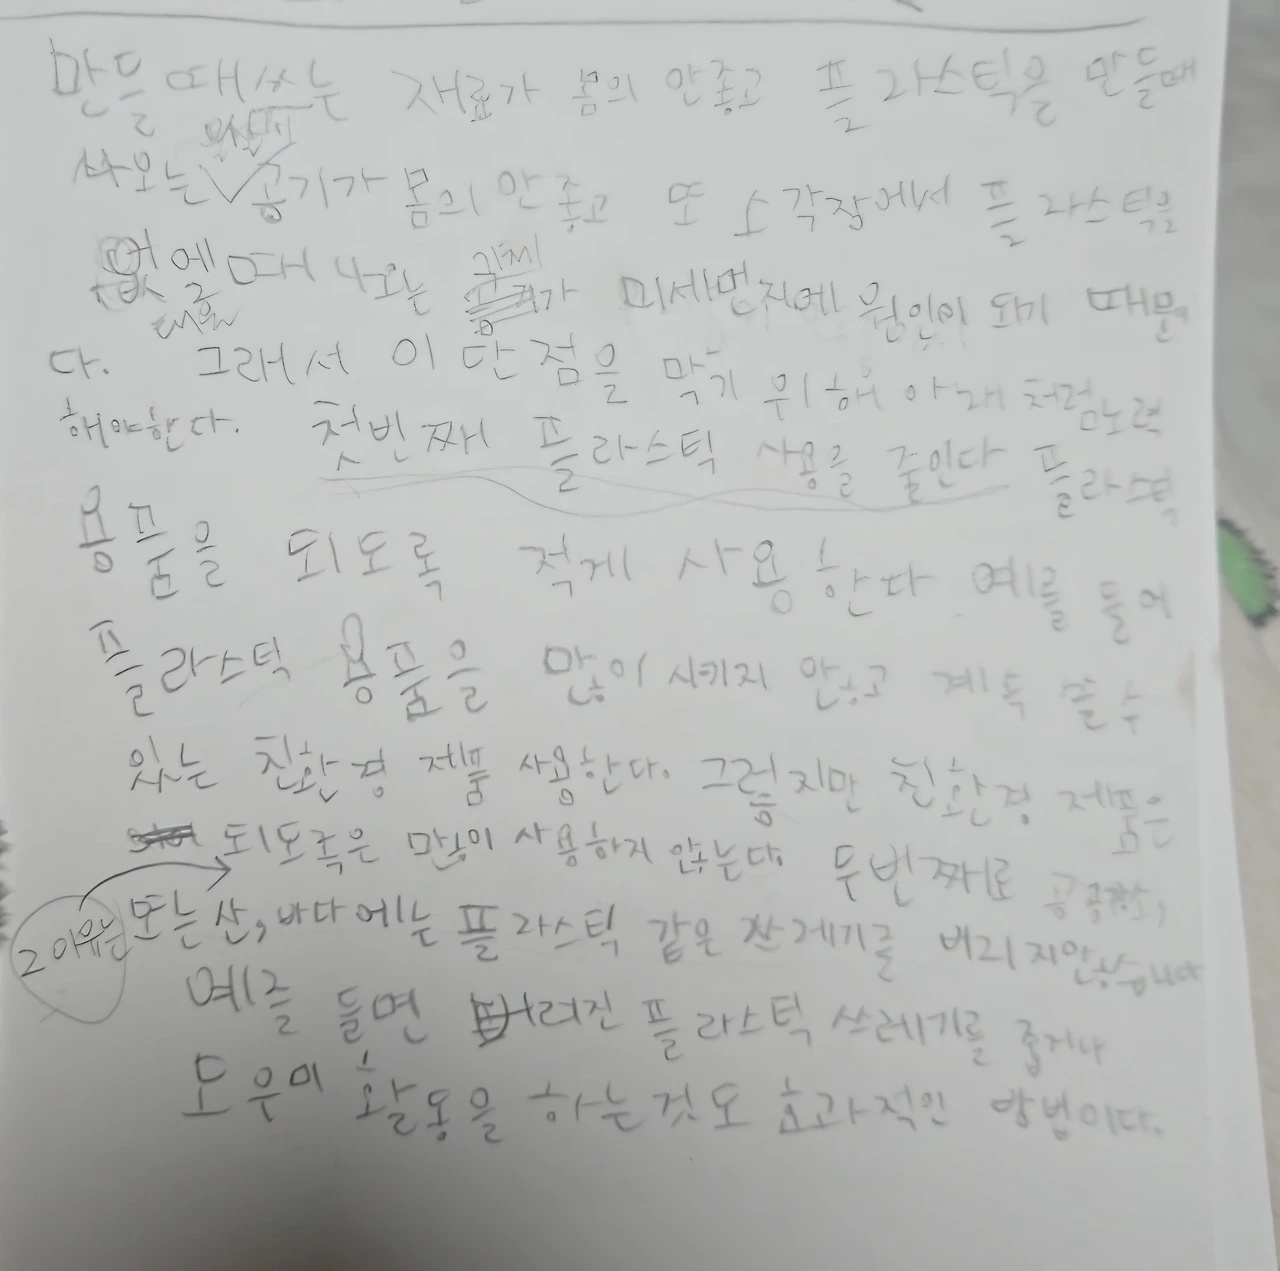 만들 때 쓰는 재료가 몸의 안좋고 플라스틱을 만들때
나오는 공기가 몸의 안좋고 또 소각장에서 플라스틱을
없엘때 나오는 기체가 미세먼지에 원인이 되기 때문
다. 그래서 이 단점을 막기 위해 아래처럼 노력
해야한다. 첫번째 플라스틱 사용을 줄인다 플라스틱
용품을 되도록 적게 사용한다 예를 들어
플라스틱 용품을 많이 시키지 안고 계속 쓸 수
있는 친환경 제품 사용한다. 그렇지만 친환경 제품은
되도록은 많이 사용하지 않는다. 두번째로 공공장소,
그 이유는
또는 산, 바다에는 플라스틱 같은 쓰레기를 버리지안습니다
예를 들면 버려진 플라스틱 쓰레기를 줍거나
모우미 활동을 하는것도 효과적인 방법이다.